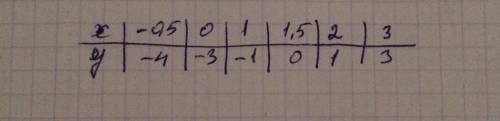 x | -0,5 | 0 | 1 | 1,5 | 2 | 3
y | -4 | -3 | -1 | 0 | 1 | 3